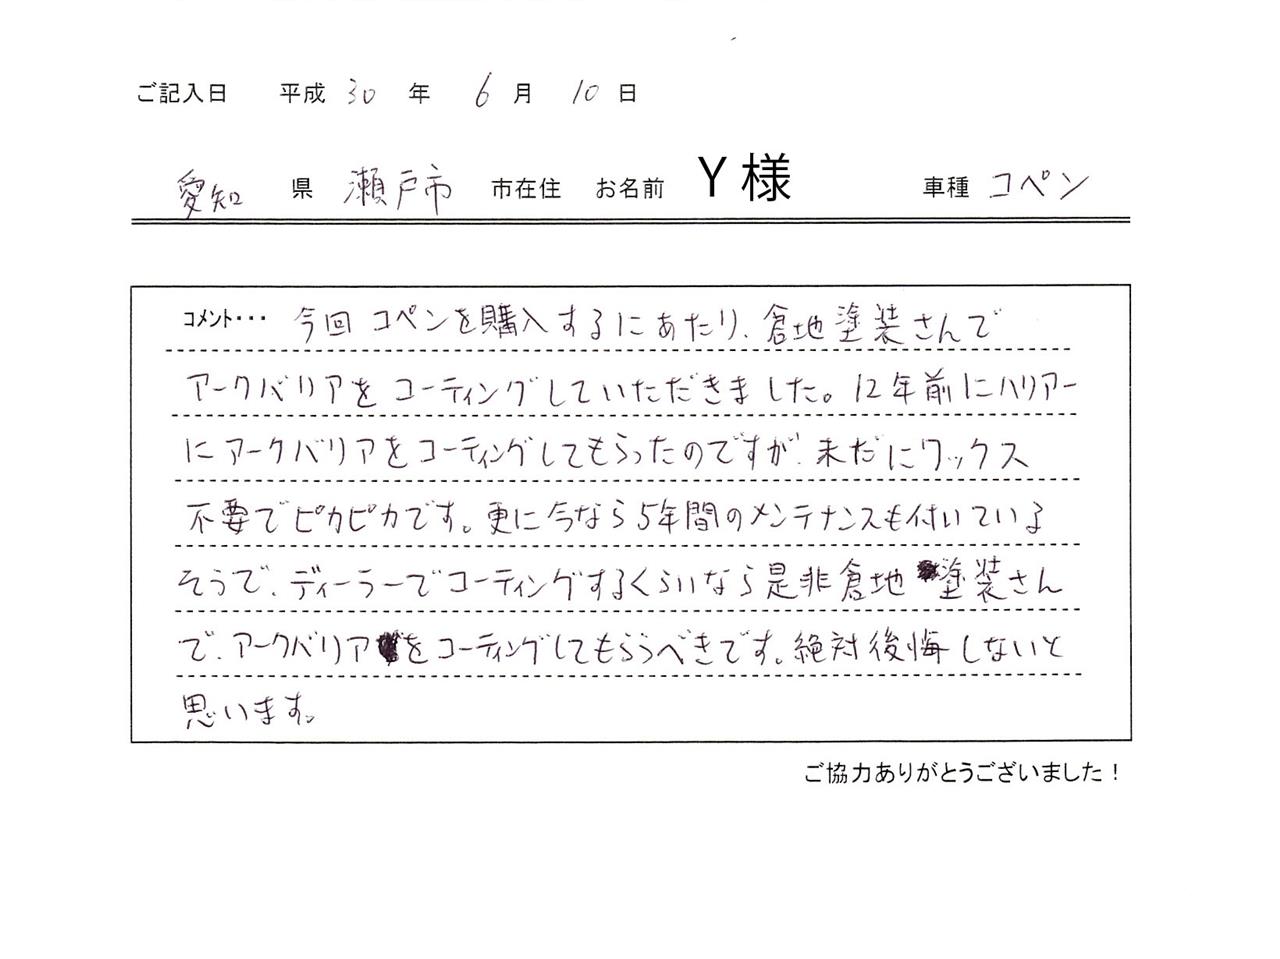 ご記入日 平成 30 年 6 月 10 日
愛知 県 瀬戸市 市在住 お名前 Y 様 車種 コペン
コメント・・・ 今回 コペンを購入するにあたり、倉地塗装さんで
アークバリアをコーティングしていただきました。12年前にハリアー
にアークバリアをコーティングしてもらったのですが、未だにワックス
不要でピカピカです。更に今なら5年間のメンテナンスも付いている
そうで、ディーラーでコーティングするくらいなら是非倉地塗装さん
で、アークバリアをコーティングしてもらうべきです。絶対後悔しないと
思います。
ご協力ありがとうございました！